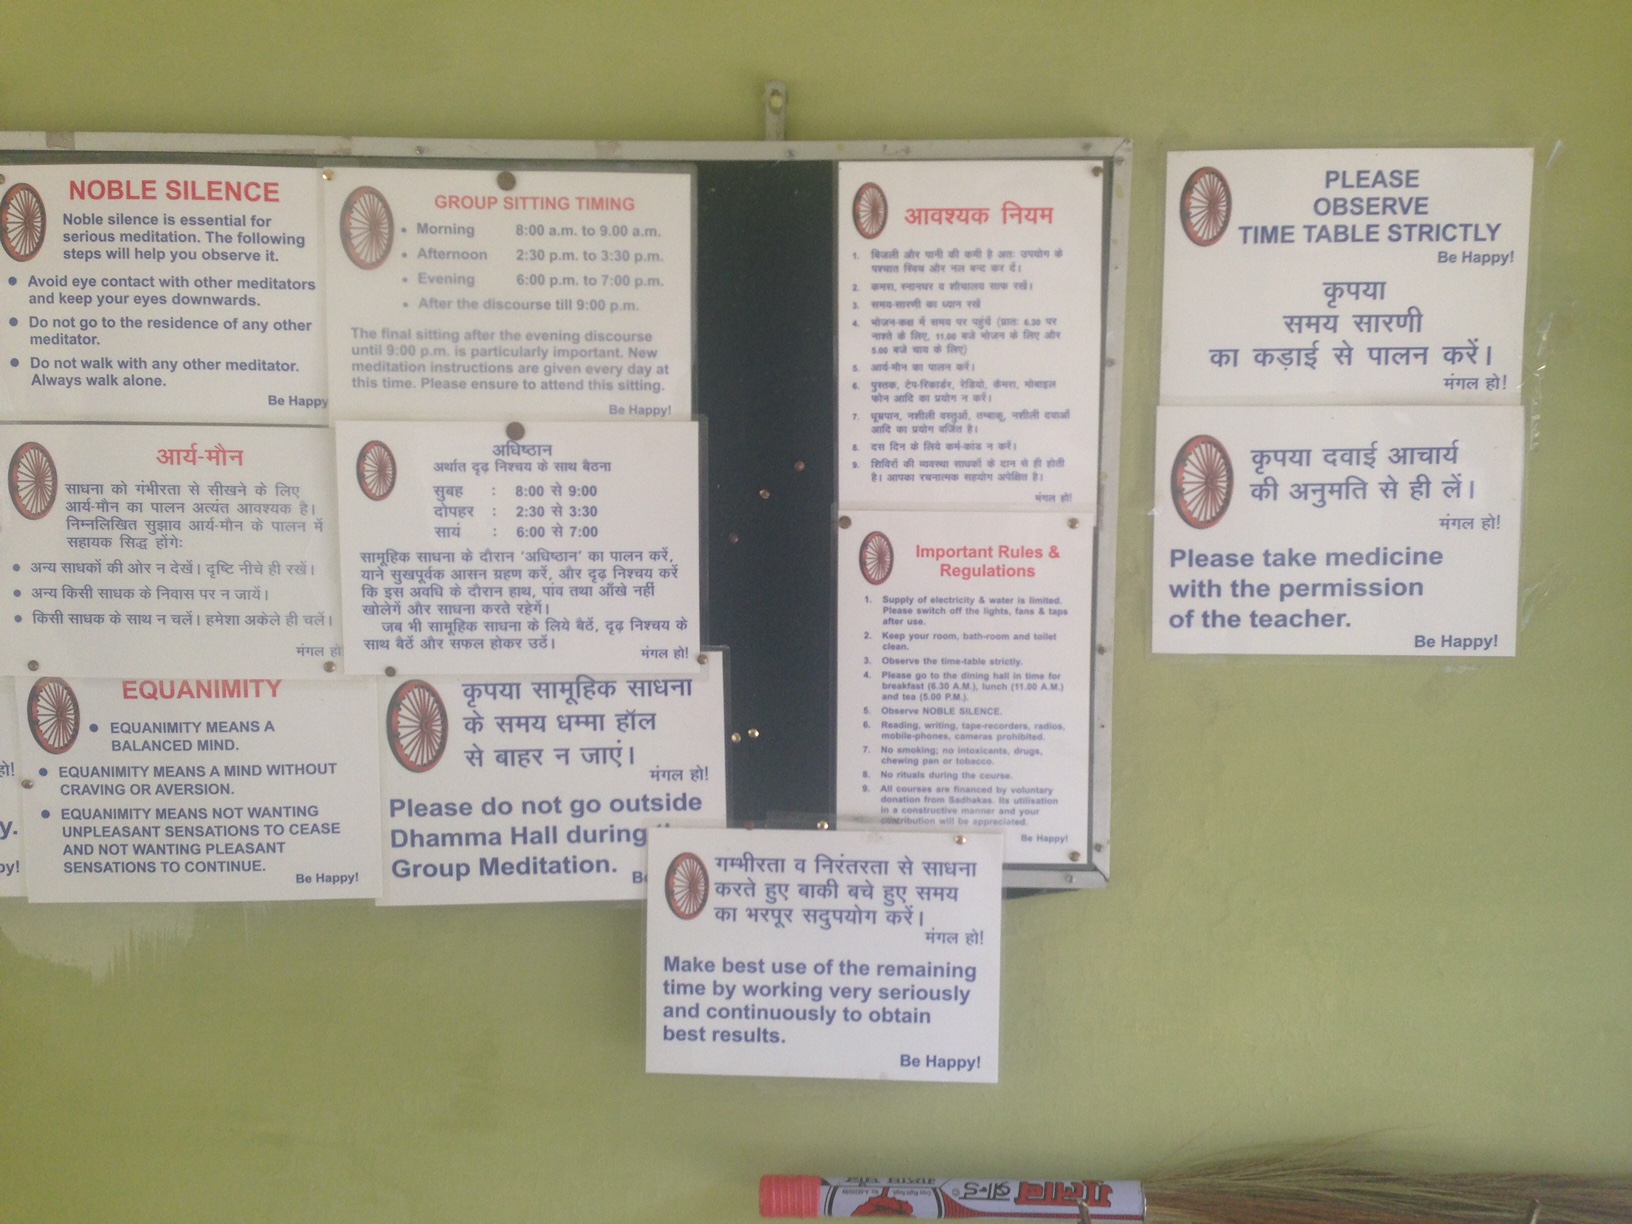 NOBLE SILENCE
Noble silence is essential for
serious meditation. The following
steps will help you observe it.
• Avoid eye contact with other meditators
and keep your eyes downwards.
• Do not go to the residence of any other
meditator.
• Do not walk with any other meditator.
Always walk alone.
Be Happy
GROUP SITTING TIMING
• Morning 8:00 a.m. to 9.00 a.m.
• Afternoon 2:30 p.m. to 3:30 p.m.
• Evening 6:00 p.m. to 7:00 p.m.
• After the discourse till 9:00 p.m.
The final sitting after the evening discourse
until 9:00 p.m. is particularly important. New
meditation instructions are given every day at
this time. Please ensure to attend this sitting.
Be Happy!
आर्य-मौन
साधना को गंभीरता से सीखने के लिए
आर्य-मौन का पालन अत्यंत आवश्यक है।
निम्नलिखित सुझाव आर्य-मौन के पालन में
सहायक सिद्ध होंगे:
• अन्य साधकों की ओर न देखें। दृष्टि नीचे ही रखें।
• अन्य किसी साधक के निवास पर न जायें।
• किसी साधक के साथ न चलें। हमेशा अकेले ही चलें।
मंगल हो
अधिष्ठान
अर्थात दृढ़ निश्चय के साथ बैठना
सुबह : 8:00 से 9:00
दोपहर : 2:30 से 3:30
सायं : 6:00 से 7:00
सामूहिक साधना के दौरान 'अधिष्ठान' का पालन करें,
याने सुखपूर्वक आसन ग्रहण करें, और दृढ़ निश्चय करें
कि इस अवधि के दौरान हाथ, पांव तथा आँखे नहीं
खोलेगें और साधना करते रहेगें।
जब भी सामूहिक साधना के लिये बैठें, दृढ़ निश्चय के
साथ बैठें और सफल होकर उठें।
मंगल हो!
हो!
y.
py!
EQUANIMITY
• EQUANIMITY MEANS A
BALANCED MIND.
• EQUANIMITY MEANS A MIND WITHOUT
CRAVING OR AVERSION.
• EQUANIMITY MEANS NOT WANTING
UNPLEASANT SENSATIONS TO CEASE
AND NOT WANTING PLEASANT
SENSATIONS TO CONTINUE.
Be Happy!
कृपया सामूहिक साधना
के समय धम्मा हॉल
से बाहर न जाएं।
मंगल हो!
Please do not go outside
Dhamma Hall during
Group Meditation.
आवश्यक नियम
1. बिजली और पानी की कमी है अतः उपयोग के
पश्चात स्विच और नल बन्द कर दें।
2. कमरा, स्नानघर व शौचालय साफ रखें।
3. समय-सारणी का ध्यान रखें
4. भोजन-कक्ष में समय पर पहुंचें (प्रातः 6.30 पर
नाश्ते के लिए, 11.00 बजे भोजन के लिए और
5.00 बजे चाय के लिए)
5. आर्य-मौन का पालन करें।
6. पुस्तक, टेप-रिकार्डर, रेडियो, कैमरा, मोबाइल
फोन आदि का प्रयोग न करें।
7. धूम्रपान, नशीली वस्तुओं, तम्बाकू, नशीली दवाओं
आदि का प्रयोग वर्जित है।
8. दस दिन के लिये कर्म-कांड न करें।
9. शिविरों की व्यवस्था साधकों के दान से ही होती
है। आपका रचनात्मक सहयोग अपेक्षित है।
मंगल हो!
Important Rules &
Regulations
1. Supply of electricity & water is limited.
Please switch off the lights, fans & taps
after use.
2. Keep your room, bath-room and toilet
clean.
3. Observe the time-table strictly.
4. Please go to the dining hall in time for
breakfast (6.30 A.M.), lunch (11.00 A.M.)
and tea (5.00 P.M.).
5. Observe NOBLE SILENCE.
6. Reading, writing, tape-recorders, radios,
mobile-phones, cameras prohibited.
7. No smoking; no intoxicants, drugs,
chewing pan or tobacco.
8. No rituals during the course.
9. All courses are financed by voluntary
donation from Sadhakas. Its utilisation
in a constructive manner and your
contribution will be appreciated.
Be Happy!
गम्भीरता व निरंतरता से साधना
करते हुए बाकी बचे हुए समय
का भरपूर सदुपयोग करें।
मंगल हो!
Make best use of the remaining
time by working very seriously
and continuously to obtain
best results.
Be Happy!
PLEASE
OBSERVE
TIME TABLE STRICTLY
Be Happy!
कृपया
समय सारणी
का कड़ाई से पालन करें।
मंगल हो!
कृपया दवाई आचार्य
की अनुमति से ही लें।
मंगल हो!
Please take medicine
with the permission
of the teacher.
Be Happy!